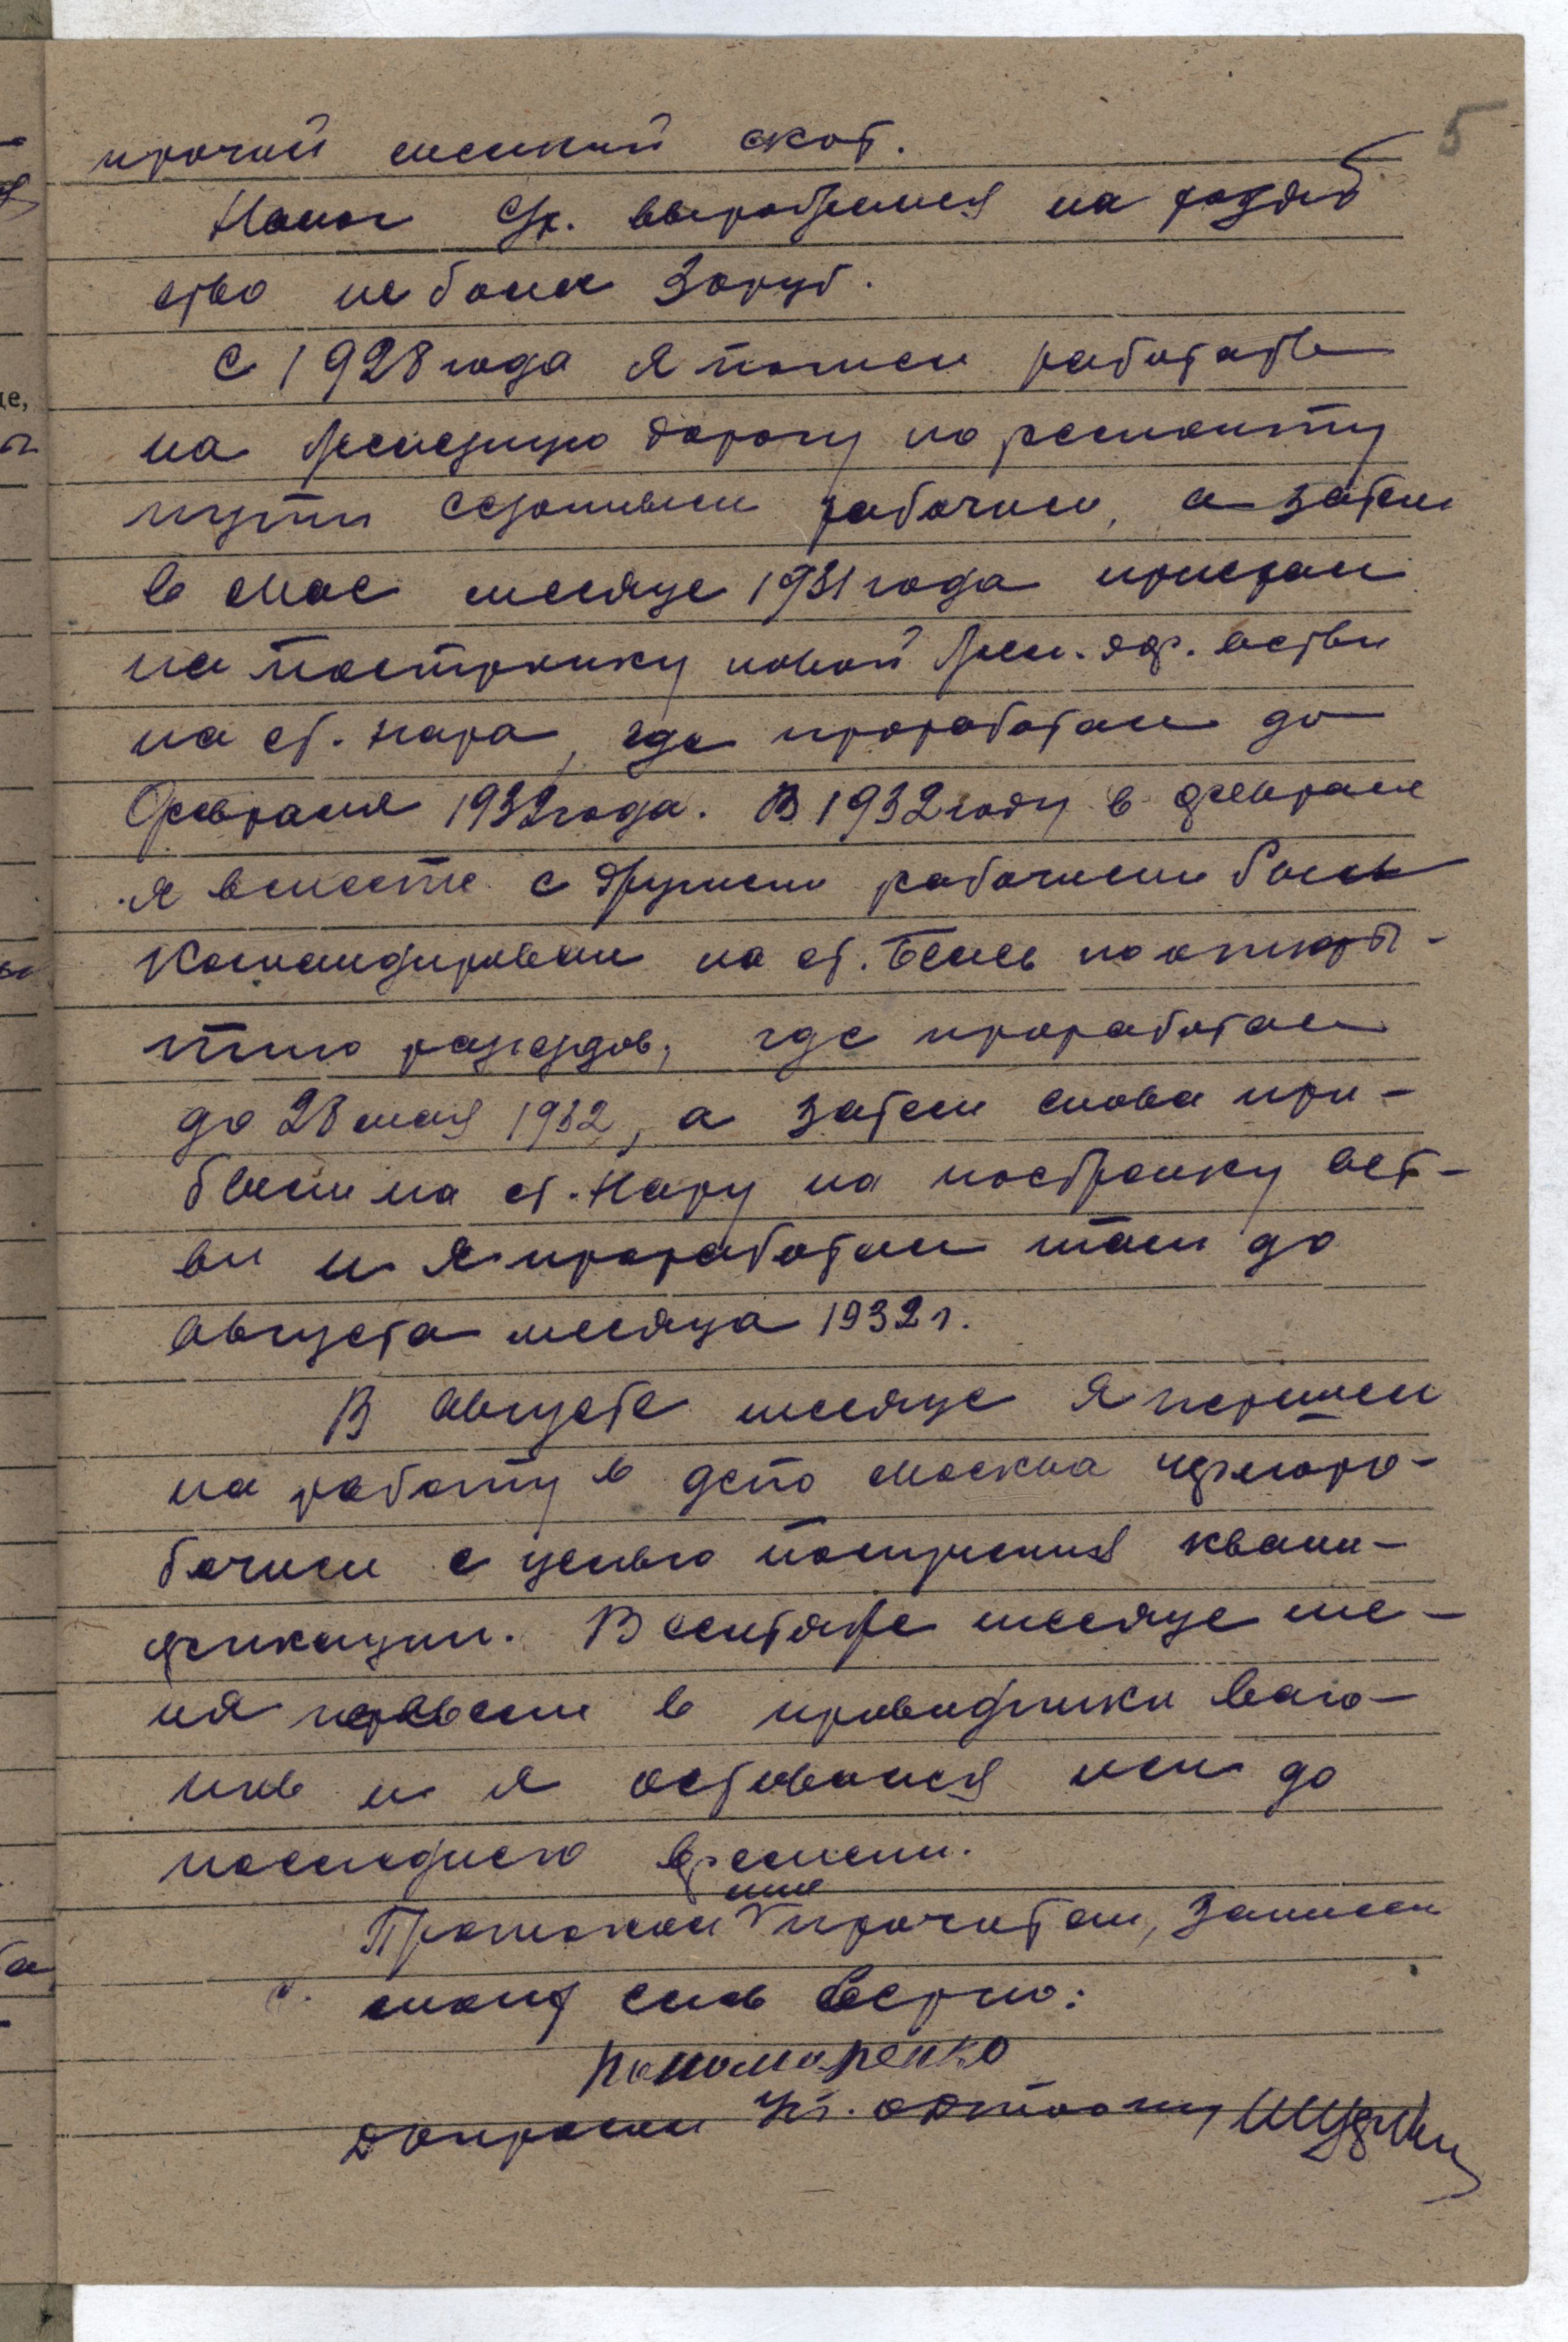 5
прочий мелкий скот.
Налог
ство не более 30 руб.
С 1928 года я пошел работать
на железную дорогу по ремонту
пути сезонным рабочим, а затем
в мае месяце 1931 года приехал
на постройку новой жел. дор. ветви
на ст. Нара, где проработал до
Февраля 1932 года. В 1932 году в феврале
я вместе с другими рабочими был
командирован на ст. по откры-
тию раз'ездов, где проработал
до 28 мая 1932, а затем снова при-
были на ст. Нару на постройку вет-
ви и я проработал там до
Августа месяца 1932 г.
В Августе месяце я перешел
на работу в депо Москва чернора-
бочим с целью получения квали-
фикации. В сентябре месяце ме-
ня перевели в проводники ваго-
нов и я оставался им до
последнего времени.
Протокол мне прочитан, записан
с моих слов верно:
Пономаренко
Допросил